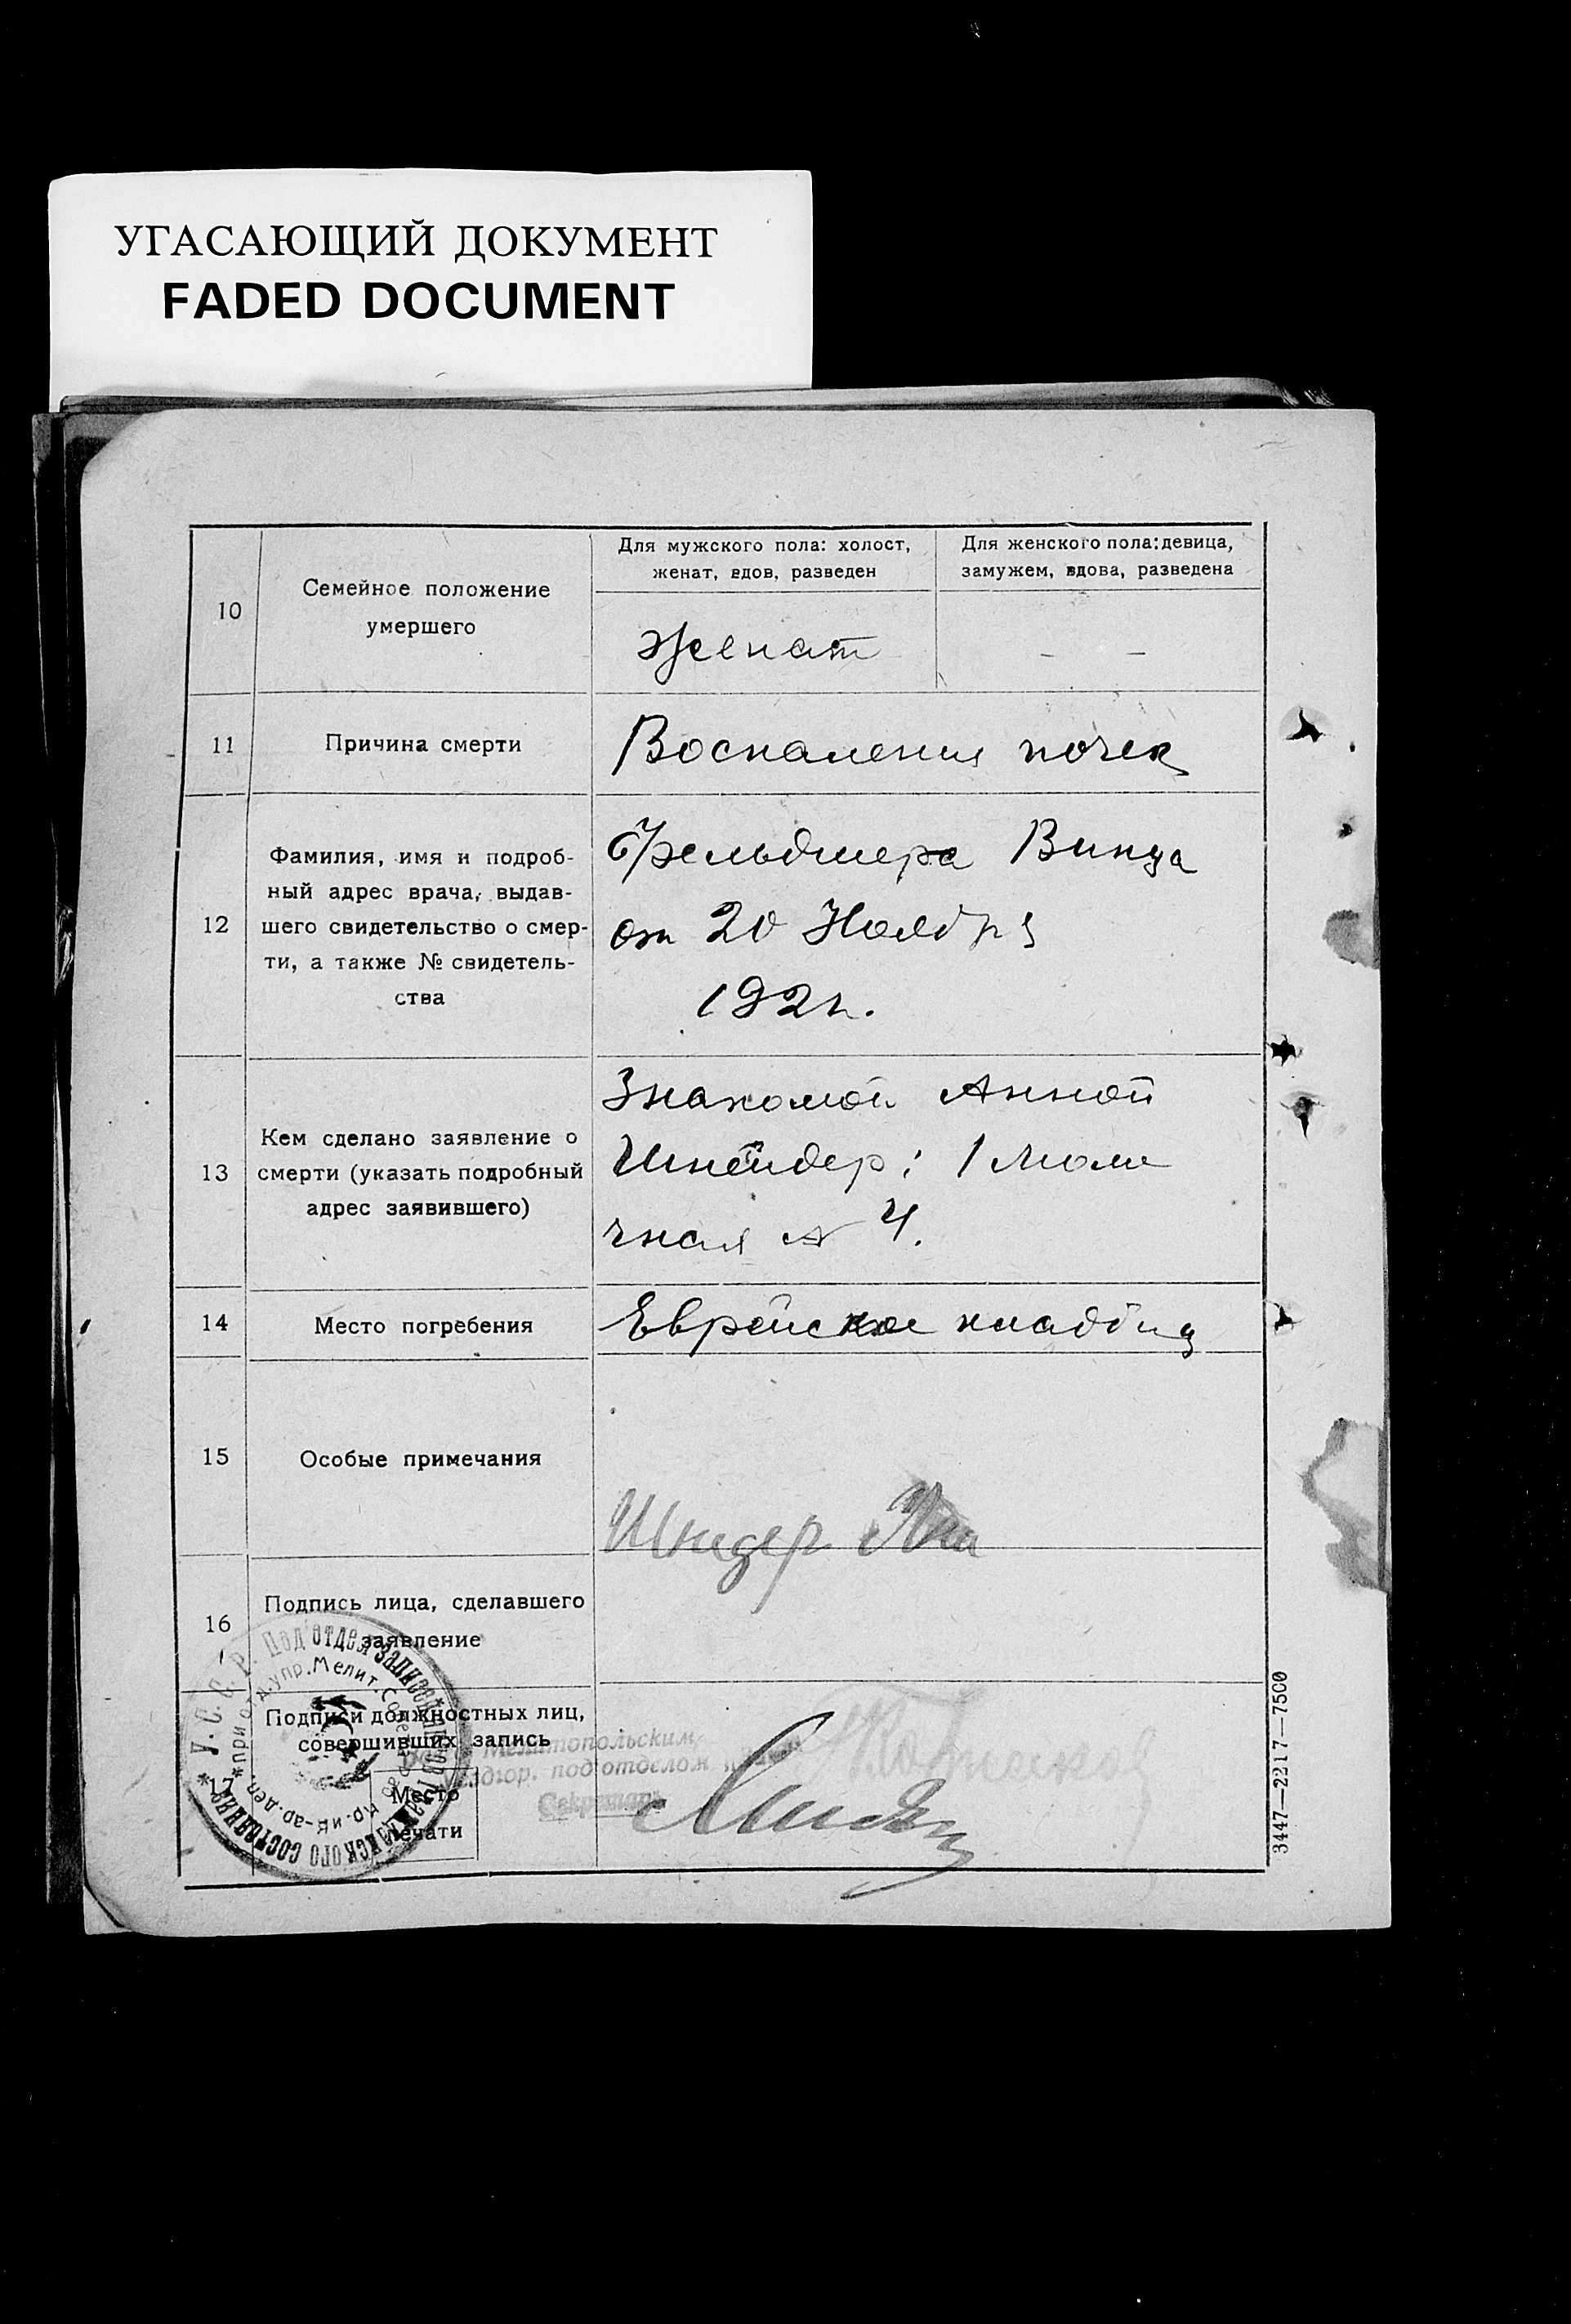 УГАСАЮЩИЙ ДОКУМЕНТ
FADED DOCUMENT
10
Семейное положение
умершего
Для мужского пола: холост,
женат, вдов, разведен
Для женского пола: девица,
замужем, вдова, разведена
Женат
— —
11
Причина смерти
Воспаления почек
12
Фамилия, имя и подроб-
ный адрес врача, выдав-
шего свидетельство о смер-
ти, а также № свидетель-
ства
Фельдшера
от 20 Ноября
192 г.
13
Кем сделано заявление о
смерти (указать подробный
адрес заявившего)
Знакомой Анной
Шнейдер; 1
чная № 4.
14
Место погребения
Еврейское кладбищ
15
Особые примечания
Шнидер
16
Подпись лица, сделавшего
заявление
17
Подписи должностных лиц,
совершивших запись
Место
печати
У.С.С.Р. Под'отдел записей гражданского состояния
упр. Мелит.
Мелитопольским
под'отделом
Секретарь
3447—2217—7500